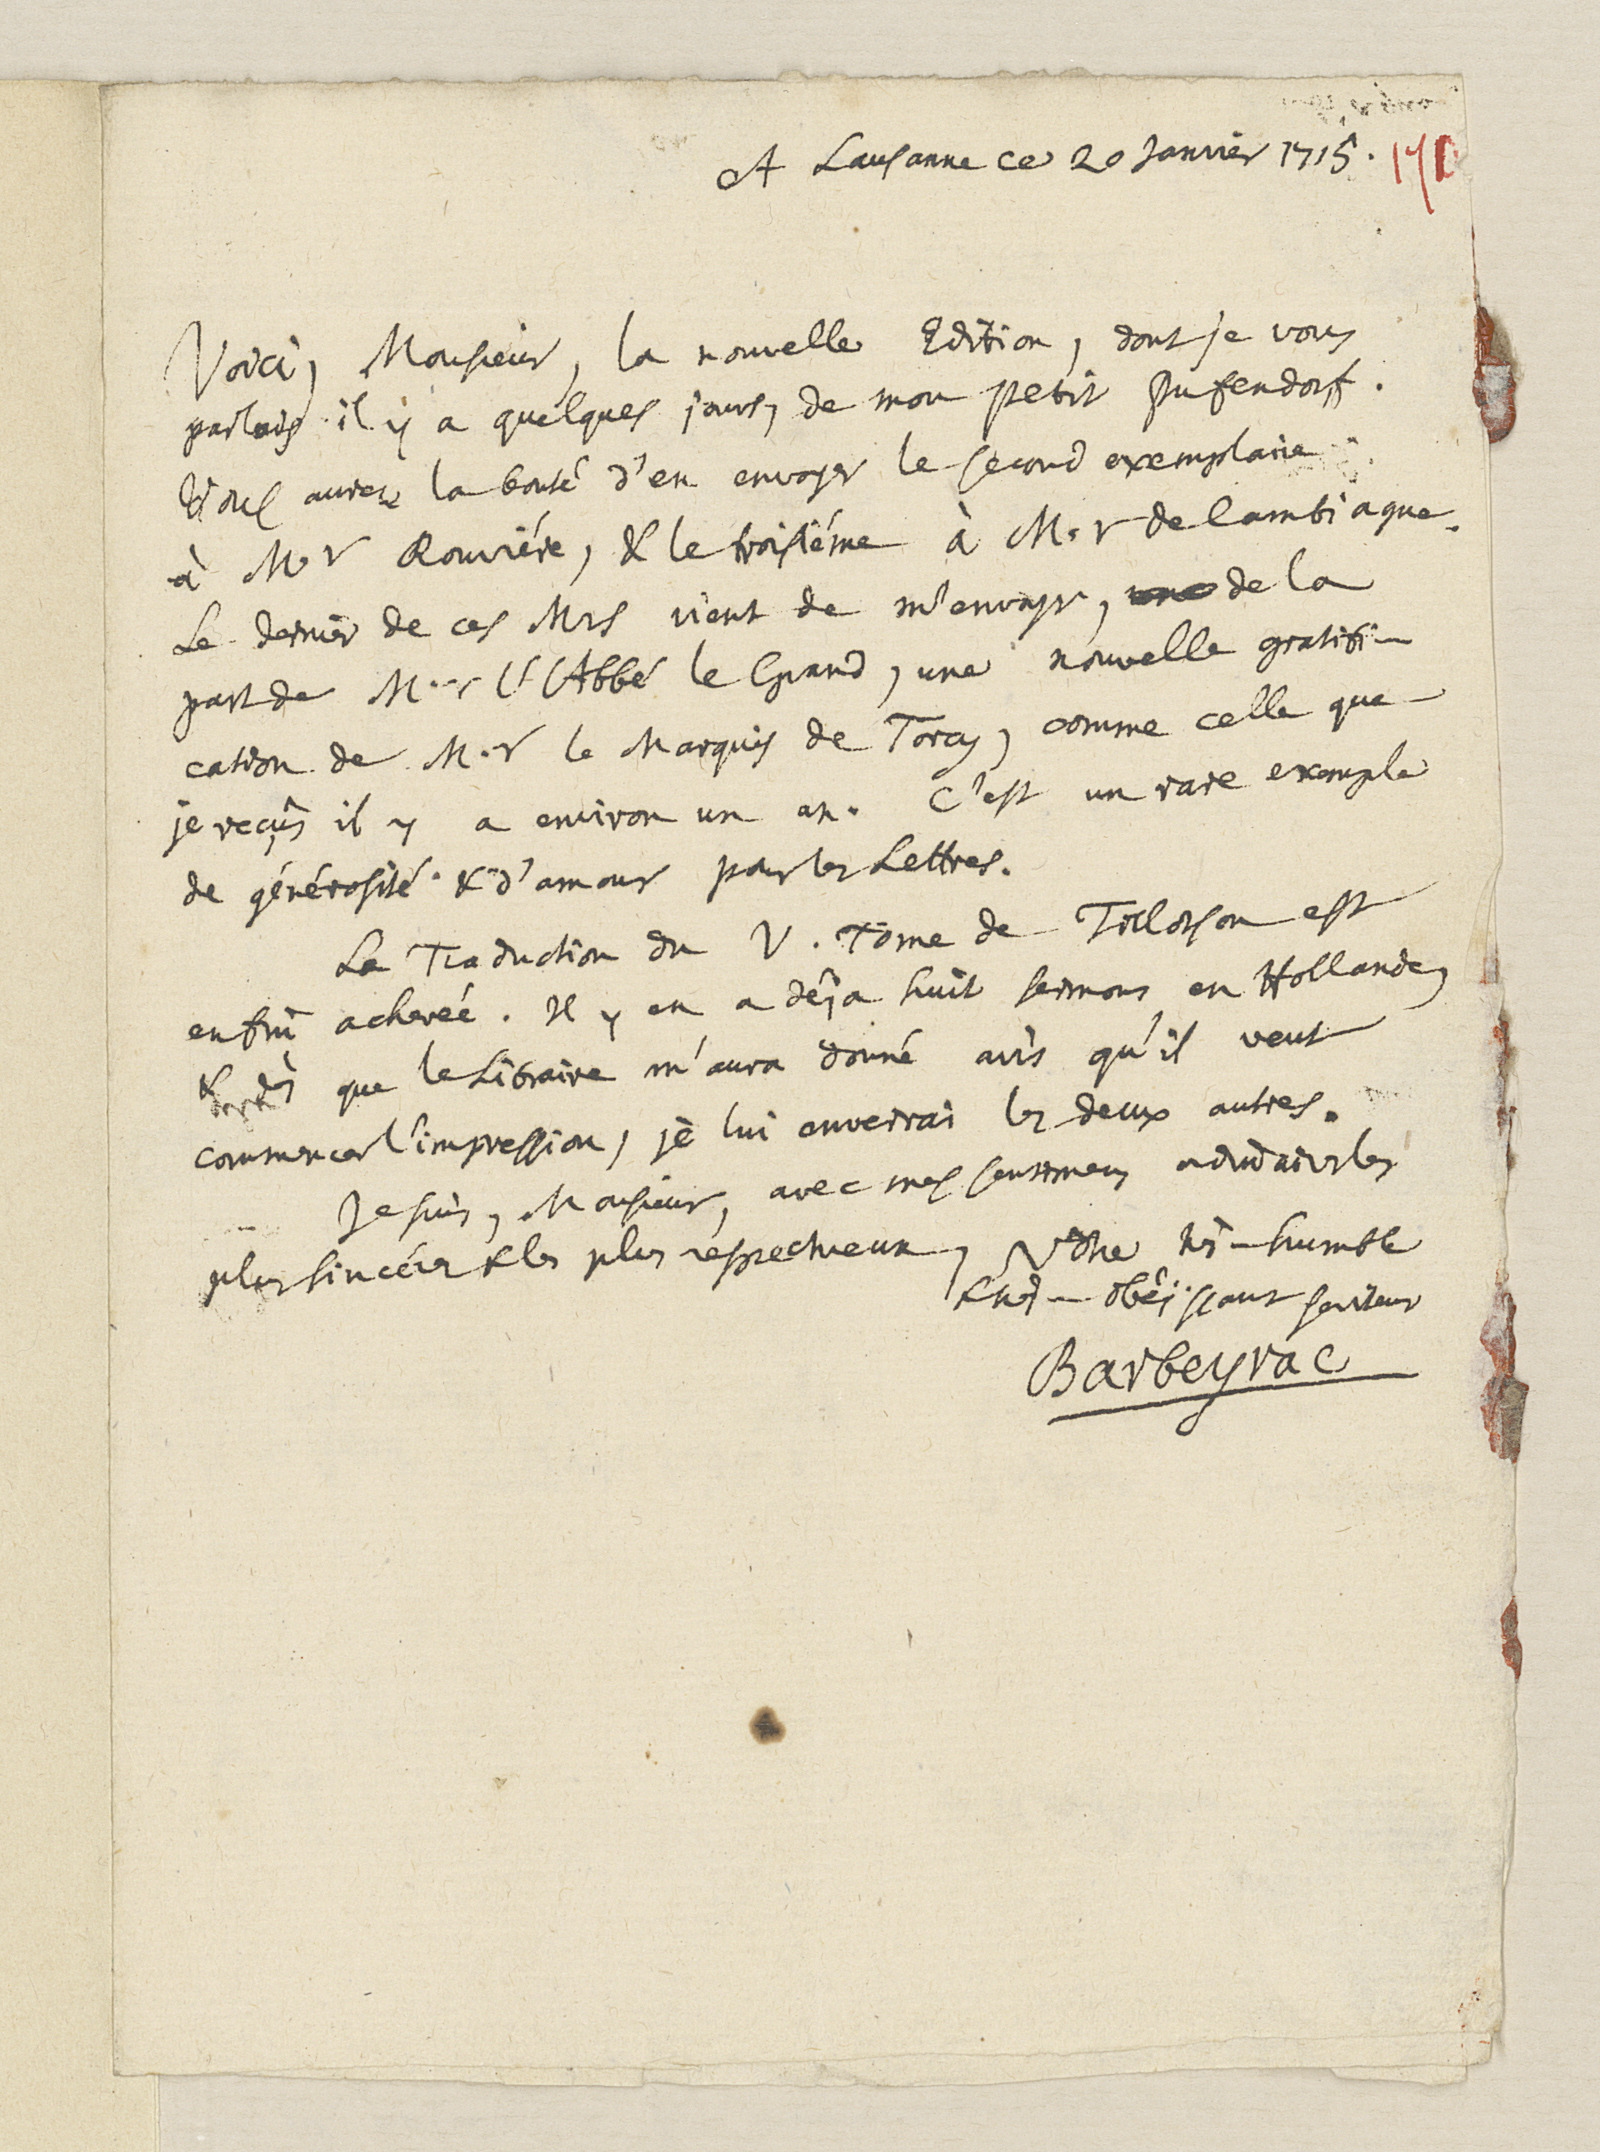 A Lausanne ce 20 Janvier 1715.
Voici, Monsieur, la nouvelle Edition, dont je vous
parlois il y a quelques jours, de mon petit Pufendorf.
Vous aurez la bonté d'en envoyer le second exemplaire
à M.r Rouviére, & le troisiéme à M.r de Cambiaque.
Le dernier de ces Mrs vient de m'envoyer, de la
part de M.r l'Abbé le Grand, une nouvelle gratifi-
cation de M.r le Marquis de Torcy, comme celle que
je reçûs il y a environ un an. C'est un rare exemple
de générosité & d'amour pour les Lettres.
La Traduction du V. Tome de Tillotson est
enfin achevée. Il y en a déja huit sermons en Hollande,
& dès que le Libraire m'aura donné avis qu'il veut
commencer l'impression, je lui enverrai les deux autres.
Je suis, Monsieur, avec mes sentimens ordinaires les
plus sincéres & les plus respectueux, Vôtre très-humble
& très-obéïssant serviteur
Barbeyrac